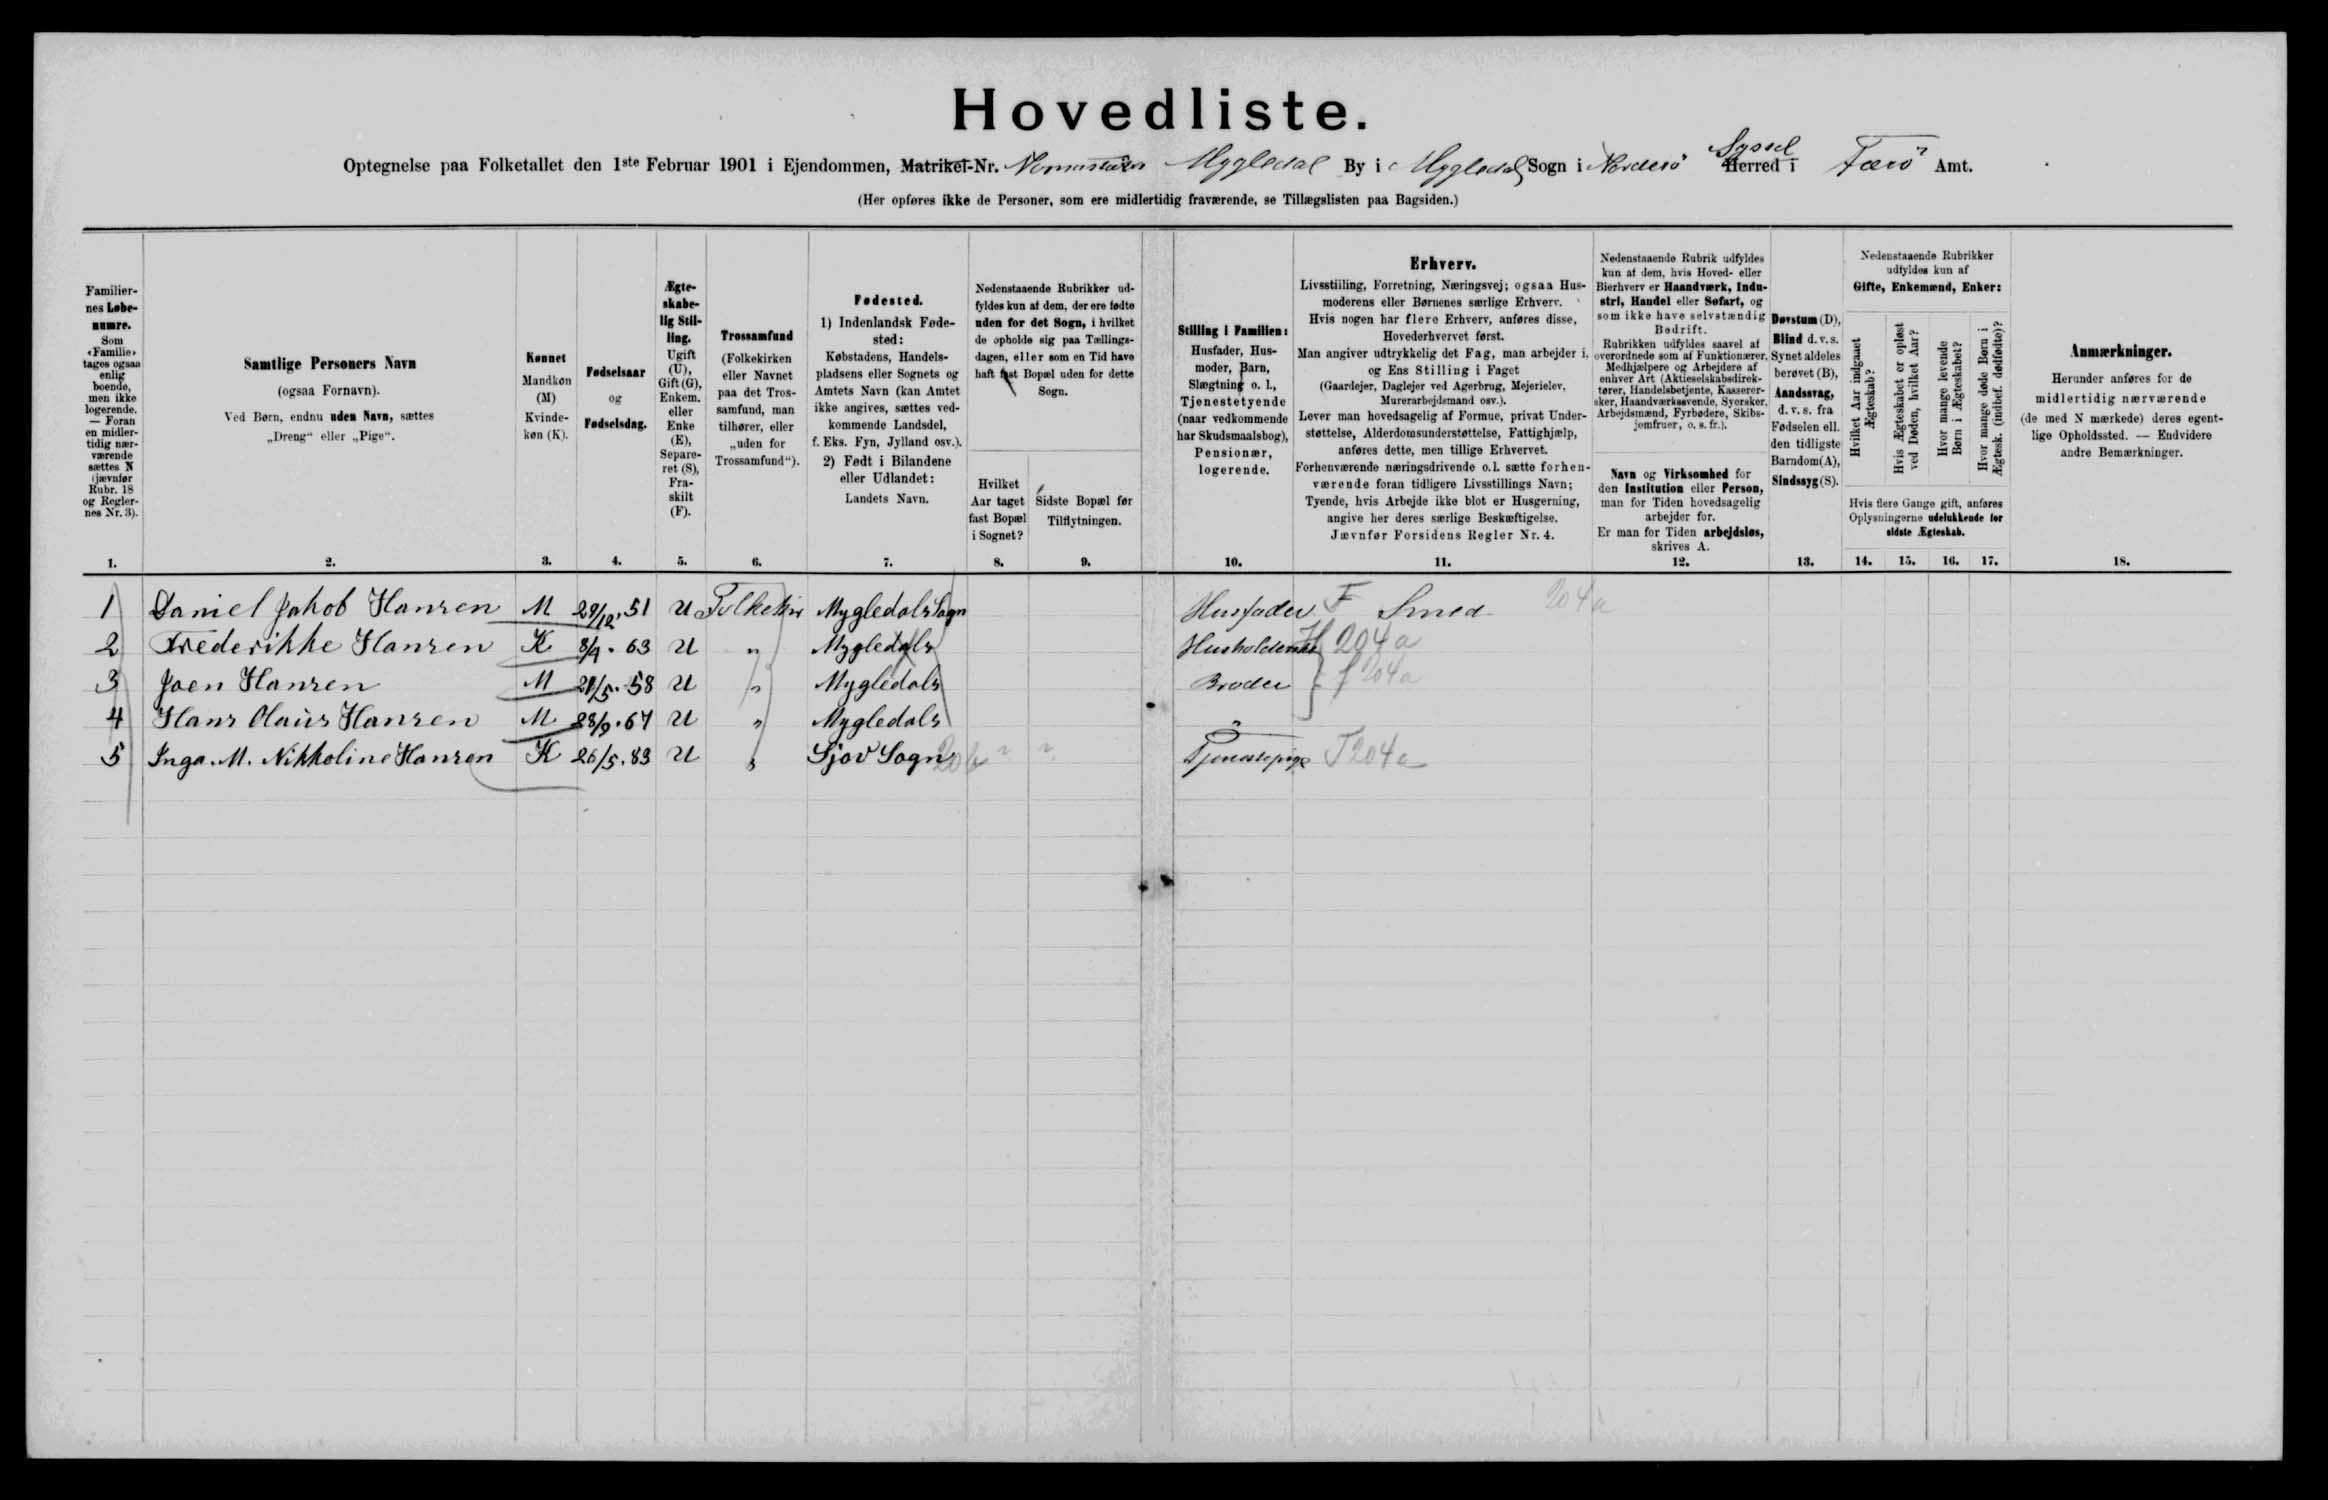 Hovedliste.
Optegnelse paa Folketallet den 1ste Februar 1901 i Ejendommen, Matrikel-Nr. Mygledal By i Mygledals Sogn i Norderø Syssel Herred i Færø Amt.
(Her opføres ikke de Personer, som ere midlertidig fraværende, se Tillægslisten paa Bagsiden.)
Familier-
nes Løbe-
numre.
Som
«Familie»
tages ogsaa
enlig
boende,
men ikke
logerende.
— Foran
en midler-
tidig nær-
værende
sættes N
(jævnfør
Rubr. 18
og Regler-
nes Nr. 3).
1.
Samtlige Personers Navn
(ogsaa Fornavn).
Ved Børn, endnu uden Navn, sættes
„Dreng“ eller „Pige“.
2.
Kønnet
Mandkøn
(M)
Kvinde-
køn (K).
3.
Fødselsaar
og
Fødselsdag.
4.
Ægte-
skabe-
lig Stil-
ling.
Ugift
(U),
Gift (G),
Enkem.
eller
Enke
(E),
Separe-
ret (S),
Fra-
skilt
(F).
5.
Trossamfund
(Folkekirken
eller Navnet
paa det Tros-
samfund, man
tilhører, eller
„uden for
Trossamfund“).
6.
Fødested.
1) Indenlandsk Føde-
sted:
Købstadens, Handels-
pladsens eller Sognets og
Amtets Navn (kan Amtet
ikke angives, sættes ved-
kommende Landsdel,
f. Eks. Fyn, Jylland osv.).
2) Født i Bilandene
eller Udlandet:
Landets Navn.
7.
Nedenstaaende Rubrikker ud-
fyldes kun af dem, der ere fødte
uden for det Sogn, i hvilket
de opholde sig paa Tællings-
dagen, eller som en Tid have
haft fast Bopæl uden for dette
Sogn.
Hvilket
Aar taget
fast Bopæl
i Sognet?
8.
Sidste Bopæl før
Tilflytningen.
9.
Stilling i Familien:
Husfader, Hus-
moder, Barn,
Slægtning o. l.,
Tjenestetyende
(naar vedkommende
har Skudsmaalsbog),
Pensionær,
logerende.
10.
Erhverv.
Livsstilling, Forretning, Næringsvej; ogsaa Hus-
moderens eller Børnenes særlige Erhverv.
Hvis nogen har flere Erhverv, anføres disse,
Hovederhvervet først.
Man angiver udtrykkelig det Fag, man arbejder i,
og Ens Stilling i Faget
(Gaardejer, Daglejer ved Agerbrug, Mejerielev,
Murerarbejdsmand osv.).
Lever man hovedsagelig af Formue, privat Under-
støttelse, Alderdomsunderstøttelse, Fattighjælp,
anføres dette, men tillige Erhvervet.
Forhenværende næringsdrivende o.l. sætte forhen-
værende foran tidligere Livsstillings Navn;
Tyende, hvis Arbejde ikke blot er Husgerning,
angive her deres særlige Beskæftigelse.
Jævnfør Forsidens Regler Nr. 4.
11.
Nedenstaaende Rubrik udfyldes
kun af dem, hvis Hoved- eller
Bierhverv er Haandværk, Indu-
stri, Handel eller Søfart, og
som ikke have selvstændig
Bedrift.
Rubrikken udfyldes saavel af
overordnede som af Funktionærer,
Medhjælpere og Arbejdere af
enhver Art (Aktieselskabsdirek-
tører, Handelsbetjente, Kasserer-
sker, Haandværkssvende, Syersker,
Arbejdsmænd, Fyrbødere, Skibs-
jomfruer, o. s. fr.).
Navn og Virksomhed for
den Institution eller Person,
man for Tiden hovedsagelig
arbejder for.
Er man for Tiden arbejdsløs,
skrives A.
12.
Døvstum (D),
Blind d. v. s.
Synet aldeles
berøvet (B),
Aandssvag,
d. v. s. fra
Fødselen ell.
den tidligste
Barndom (A),
Sindssyg (S).
13.
Nedenstaaende Rubrikker
udfyldes kun af
Gifte, Enkemænd, Enker:
Hvilket Aar indgaaet
Ægteskab?
Hvis Ægteskabet er opløst
ved Døden, hvilket Aar?
Hvor mange levende
Børn i Ægteskabet?
Hvor mange døde Børn i
Ægtesk. (indbef. dødfødte)?
Hvis flere Gange gift, anføres
Oplysningerne udelukkende for
sidste Ægteskab.
14. 15. 16. 17.
Anmærkninger.
Herunder anføres for de
midlertidig nærværende
(de med N mærkede) deres egent-
lige Opholdssted. — Endvidere
andre Bemærkninger.
18.
1 Daniel Jakob Hansen M 29/12.51 U Folkekir Mygledals Sogn Husfader F Smed 204a
2 Frederikke Hansen K 8/9.63 U " Mygledals H 204a
3 Joen Hansen M 21/5.58 U " Mygledals Broder f 204a
4 Hans Olaus Hansen M 28/9.67 U " Mygledals "
5 Inga. M. Nikkoline Hansen K 26/5.83 U " Sjov Sogn " " Tjenestepige T 204a